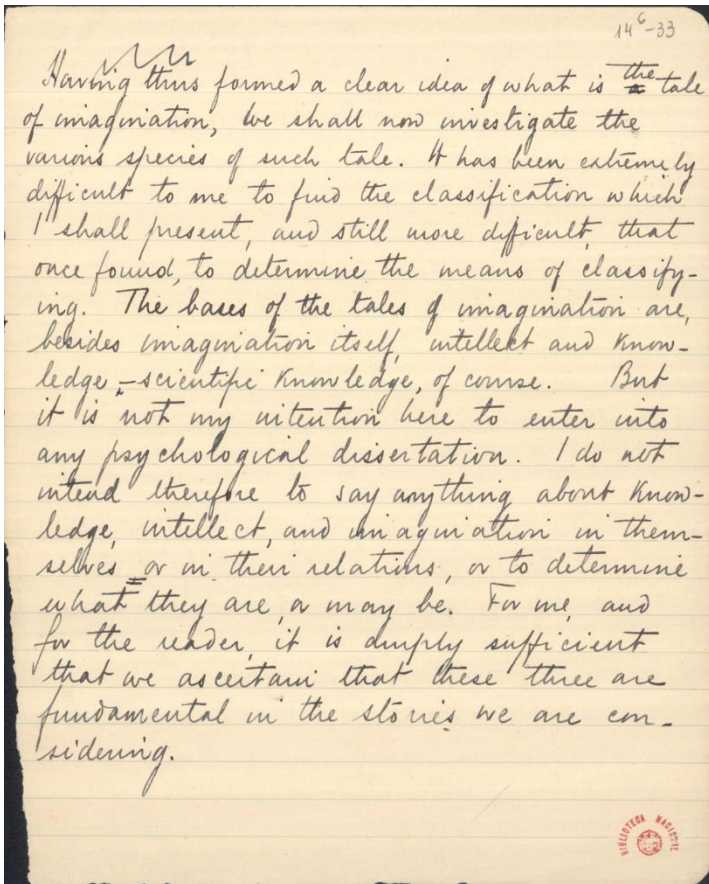 14⁶-33
Having thus formed a clear idea of what is the tale
of imagination, we shall now investigate the
various species of such tale. It has been extremely
difficult to me to find the classification which
I shall present, and still more difficult, that
once found, to determine the means of classify-
ing. The bases of the tales of imagination are,
besides imagination itself, intellect and know-
ledge, – scientific knowledge, of course. But
it is not my intention here to enter into
any psychological dissertation. I do not
intend therefore to say anything about know-
ledge, intellect, and imagination in them-
selves or in their relations, or to determine
what they are, or may be. For me, and
for the reader, it is amply sufficient
that we ascertain that these three are
fundamental in the stories we are con-
sidering.
BIBLIOTECA NACIONAL